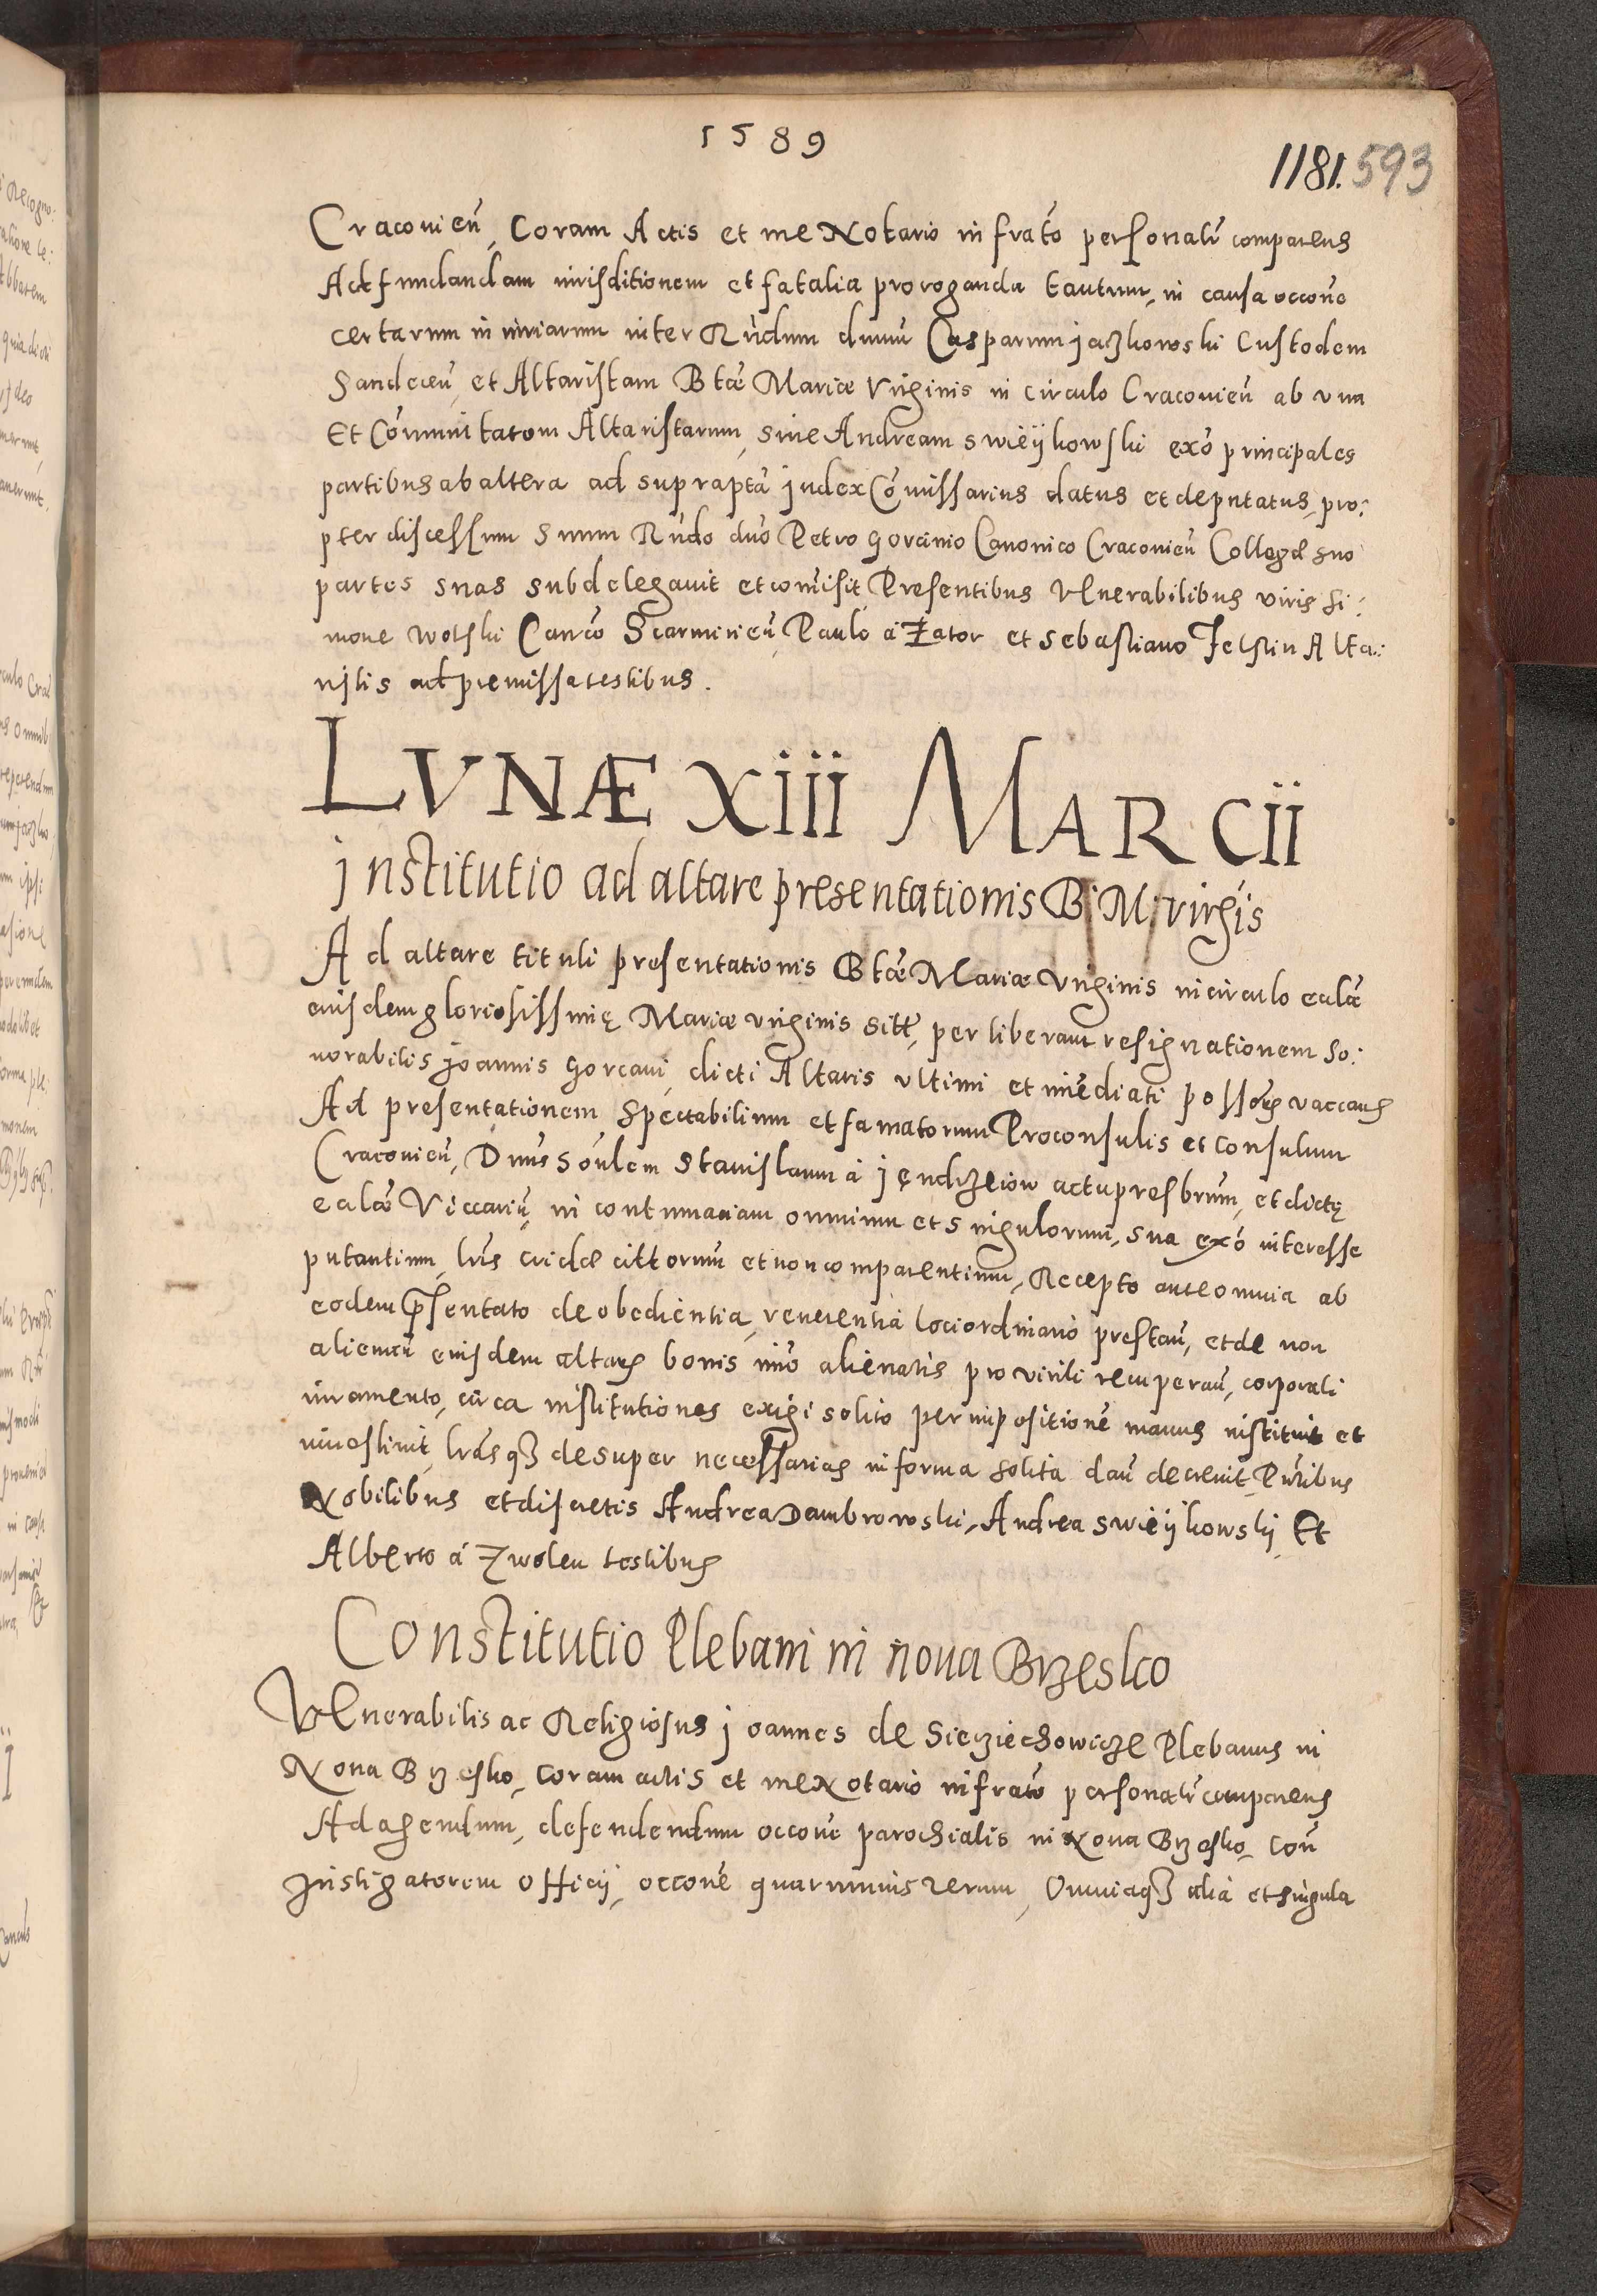 1589
1181. 593
Cracovien̄, Coram Actis et me Notario infrat̄o personalr̄ comparens
Ad fundandam iurisditionem et fatalia proroganda tantum, in causa occon̄e
certarum iniuriarum inter Rn̄dum dn̄um Casparum jazkowski Custodem
Sandecen̄ et Altaristam Btǣ Mariæ Virginis in circulo Cracovien̄ ab una
Et Com̄unitatem Altaristarum, siue Andream swieykowski exō principales
partibus ab altera ad suprap̄tā judex Com̄issarius datus et deputatus, pro:
pter discessum suum Rn̄do dn̄o Petro Gorcinio Canonico Cracovien̄ Collegæ suo
partes suas subdelegauit et com̄isit Presentibus Venerabilibus viris Si:
mone wolski Can̄co Scarmirien̄, Paulo à Zator et sebastiano Felstin Alta:
ristis ad premissa testibus.
LVNÆ XIII MARCII
jnstitutio ad altare presentationis B: M: virgis
Ad altare tituli presentationis Btǣ Mariæ Virginis in circulo eclǣ
eiusdem gloriosissimę Mariæ virginis sitt̄, per liberam resignationem ho:
norabilis joannis Gorcani, dicti Altaris ultimi et im̄ediati possoris vaccans
Ad presentationem Spectabilium et famatorum Proconsulis et Consulum
Cracovien̄, Dn̄us s
 Stanislaum à jędrzeiow actu presbrūm, et dictę
eclǣ Viccariū, in contumaciam omnium et singulorum, sua exō interesse
putantium, lris̄ cridæ cittorum̄ et non comparentium, Recepto ante omnia ab
eodem p̄sentato de obedientia, reuerentia loci ordinario prestan̄, et de non
alienan̄ eiusdem altaris bonis im̄o alienatis pro virili recuperan̄, corporali
iuramento, circa institutiones exigi solito per impositionē manus instituit et
inuestiuit, lras̄q3 desuper necessarias in forma solita dan̄ decreuit, Pnt̄ibus
Nobilibus et discretis Andrea Dambrowski, Andrea swieykowskj Et
Alberto à Zwolen testibus
Constitutio Plebani in noua Brzesko
Venerabilis ac Religiosus joannes de Sieciechowicze Plebanus in
Noua Brzesko, Coram actis et me Notario infrat̄o personalr̄ comparens
Ad agendum, defendendum occon̄e parochialis in Noua Brzesko, Con̄
Instigatorem officij, occon̄e quarumuis rerum, Omniaq3 alia et singula